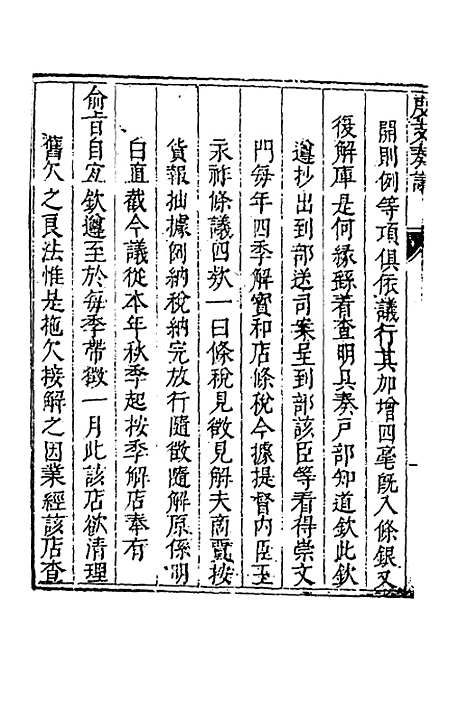 度支奏議
開則例等項俱依議行其加增四毫旣入條銀又
復解庫是何緣繇着查明具奏戶部知道欽此欽
遵抄出到部送司案呈到部該臣等看得崇文
門每年四季解寶和店條稅今據提督內臣王
永祚條議四欵一曰條稅見徵見解夫商賈按
貨報抽據例納稅納完放行隨徵隨解原係明
白直截今議從本年秋季起按季解店奉有
俞旨自宜欽遵至於每季帶徵一月此該店欲清理
舊欠之良法惟是拖欠接解之因業經該店查